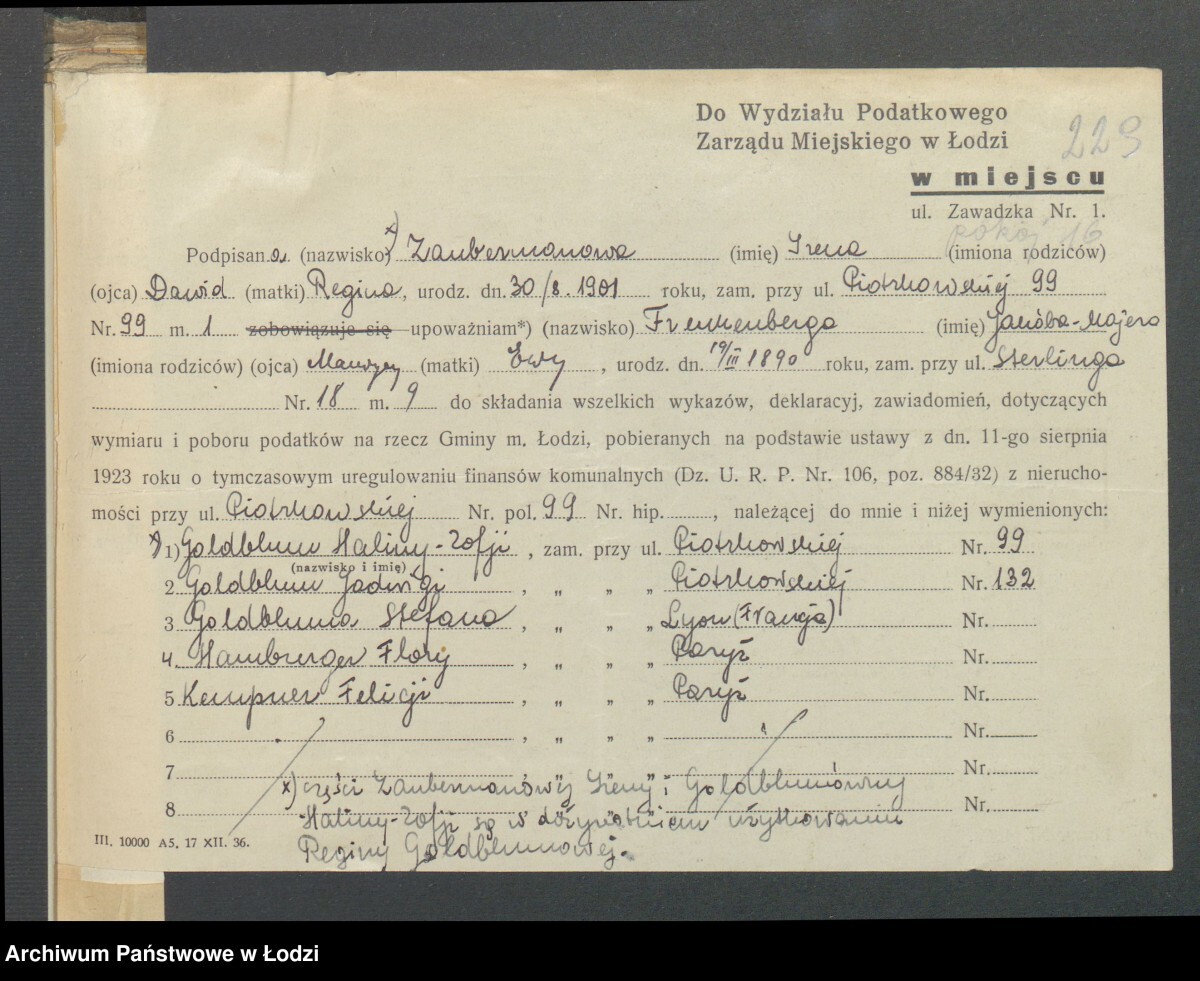 Do Wydziału Podatkowego
Zarządu Miejskiego w Łodzi
229
w miejscu
ul. Zawadzka Nr. 1.
pokój 16
Podpisana (nazwisko) x) Zaubermanowa (imię) Irena (imiona rodziców)
(ojca) Dawid (matki) Regina, urodz. dn. 30/8. 1901 roku, zam. przy ul. Piotrkowskiej 99
Nr. 99 m. 1 zobowiązuje się upoważniam*) (nazwisko) Frenkenberga (imię) Jakóba-Majera
(imiona rodziców) (ojca) Maurycy (matki) Ewy, urodz. dn. 19/III 1890 roku, zam. przy ul. Sterlinga
Nr. 18 m. 9 do składania wszelkich wykazów, deklaracyj, zawiadomień, dotyczących
wymiaru i poboru podatków na rzecz Gminy m. Łodzi, pobieranych na podstawie ustawy z dn. 11-go sierpnia
1923 roku o tymczasowym uregulowaniu finansów komunalnych (Dz. U. R. P. Nr. 106, poz. 884/32) z nierucho-
mości przy ul. Piotrkowskiej Nr. pol. 99 Nr. hip. , należącej do mnie i niżej wymienionych:
x) 1) Goldblum Haliny-Zofji , zam. przy ul. Piotrkowskiej Nr. 99
(nazwisko i imię)
2 Goldblum Jadwigi , „ „ „ Piotrkowskiej Nr. 132
3 Goldbluma Stefana , „ „ „ Lyon (Francja) Nr.
4. Hamburger Flory , „ „ „ Paryż Nr.
5 Kempner Felicji , „ „ „ Paryż Nr.
6 , „ „ „ Nr.
7 , „ „ „ Nr.
x) części Zaubermanowej Ireny i Goldblumówny
8 , „ „ „ Nr.
Haliny-Zofji są w dożywotniem użytkowaniu
Reginy Goldblumowej.
III. 10000 A5. 17 XII. 36.
Archiwum Państwowe w Łodzi